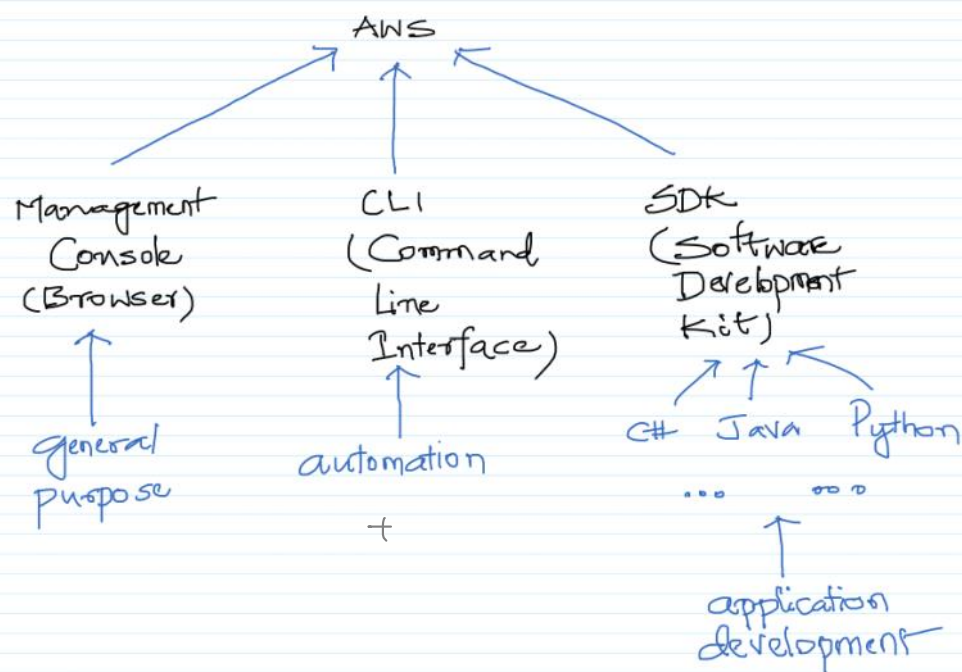 AWS
Management
Console
(Browser)
CLI
(Command
Line
Interface)
SDK
(Software
Development
Kit)
general
purpose
automation
C# Java Python
... ...
application
development